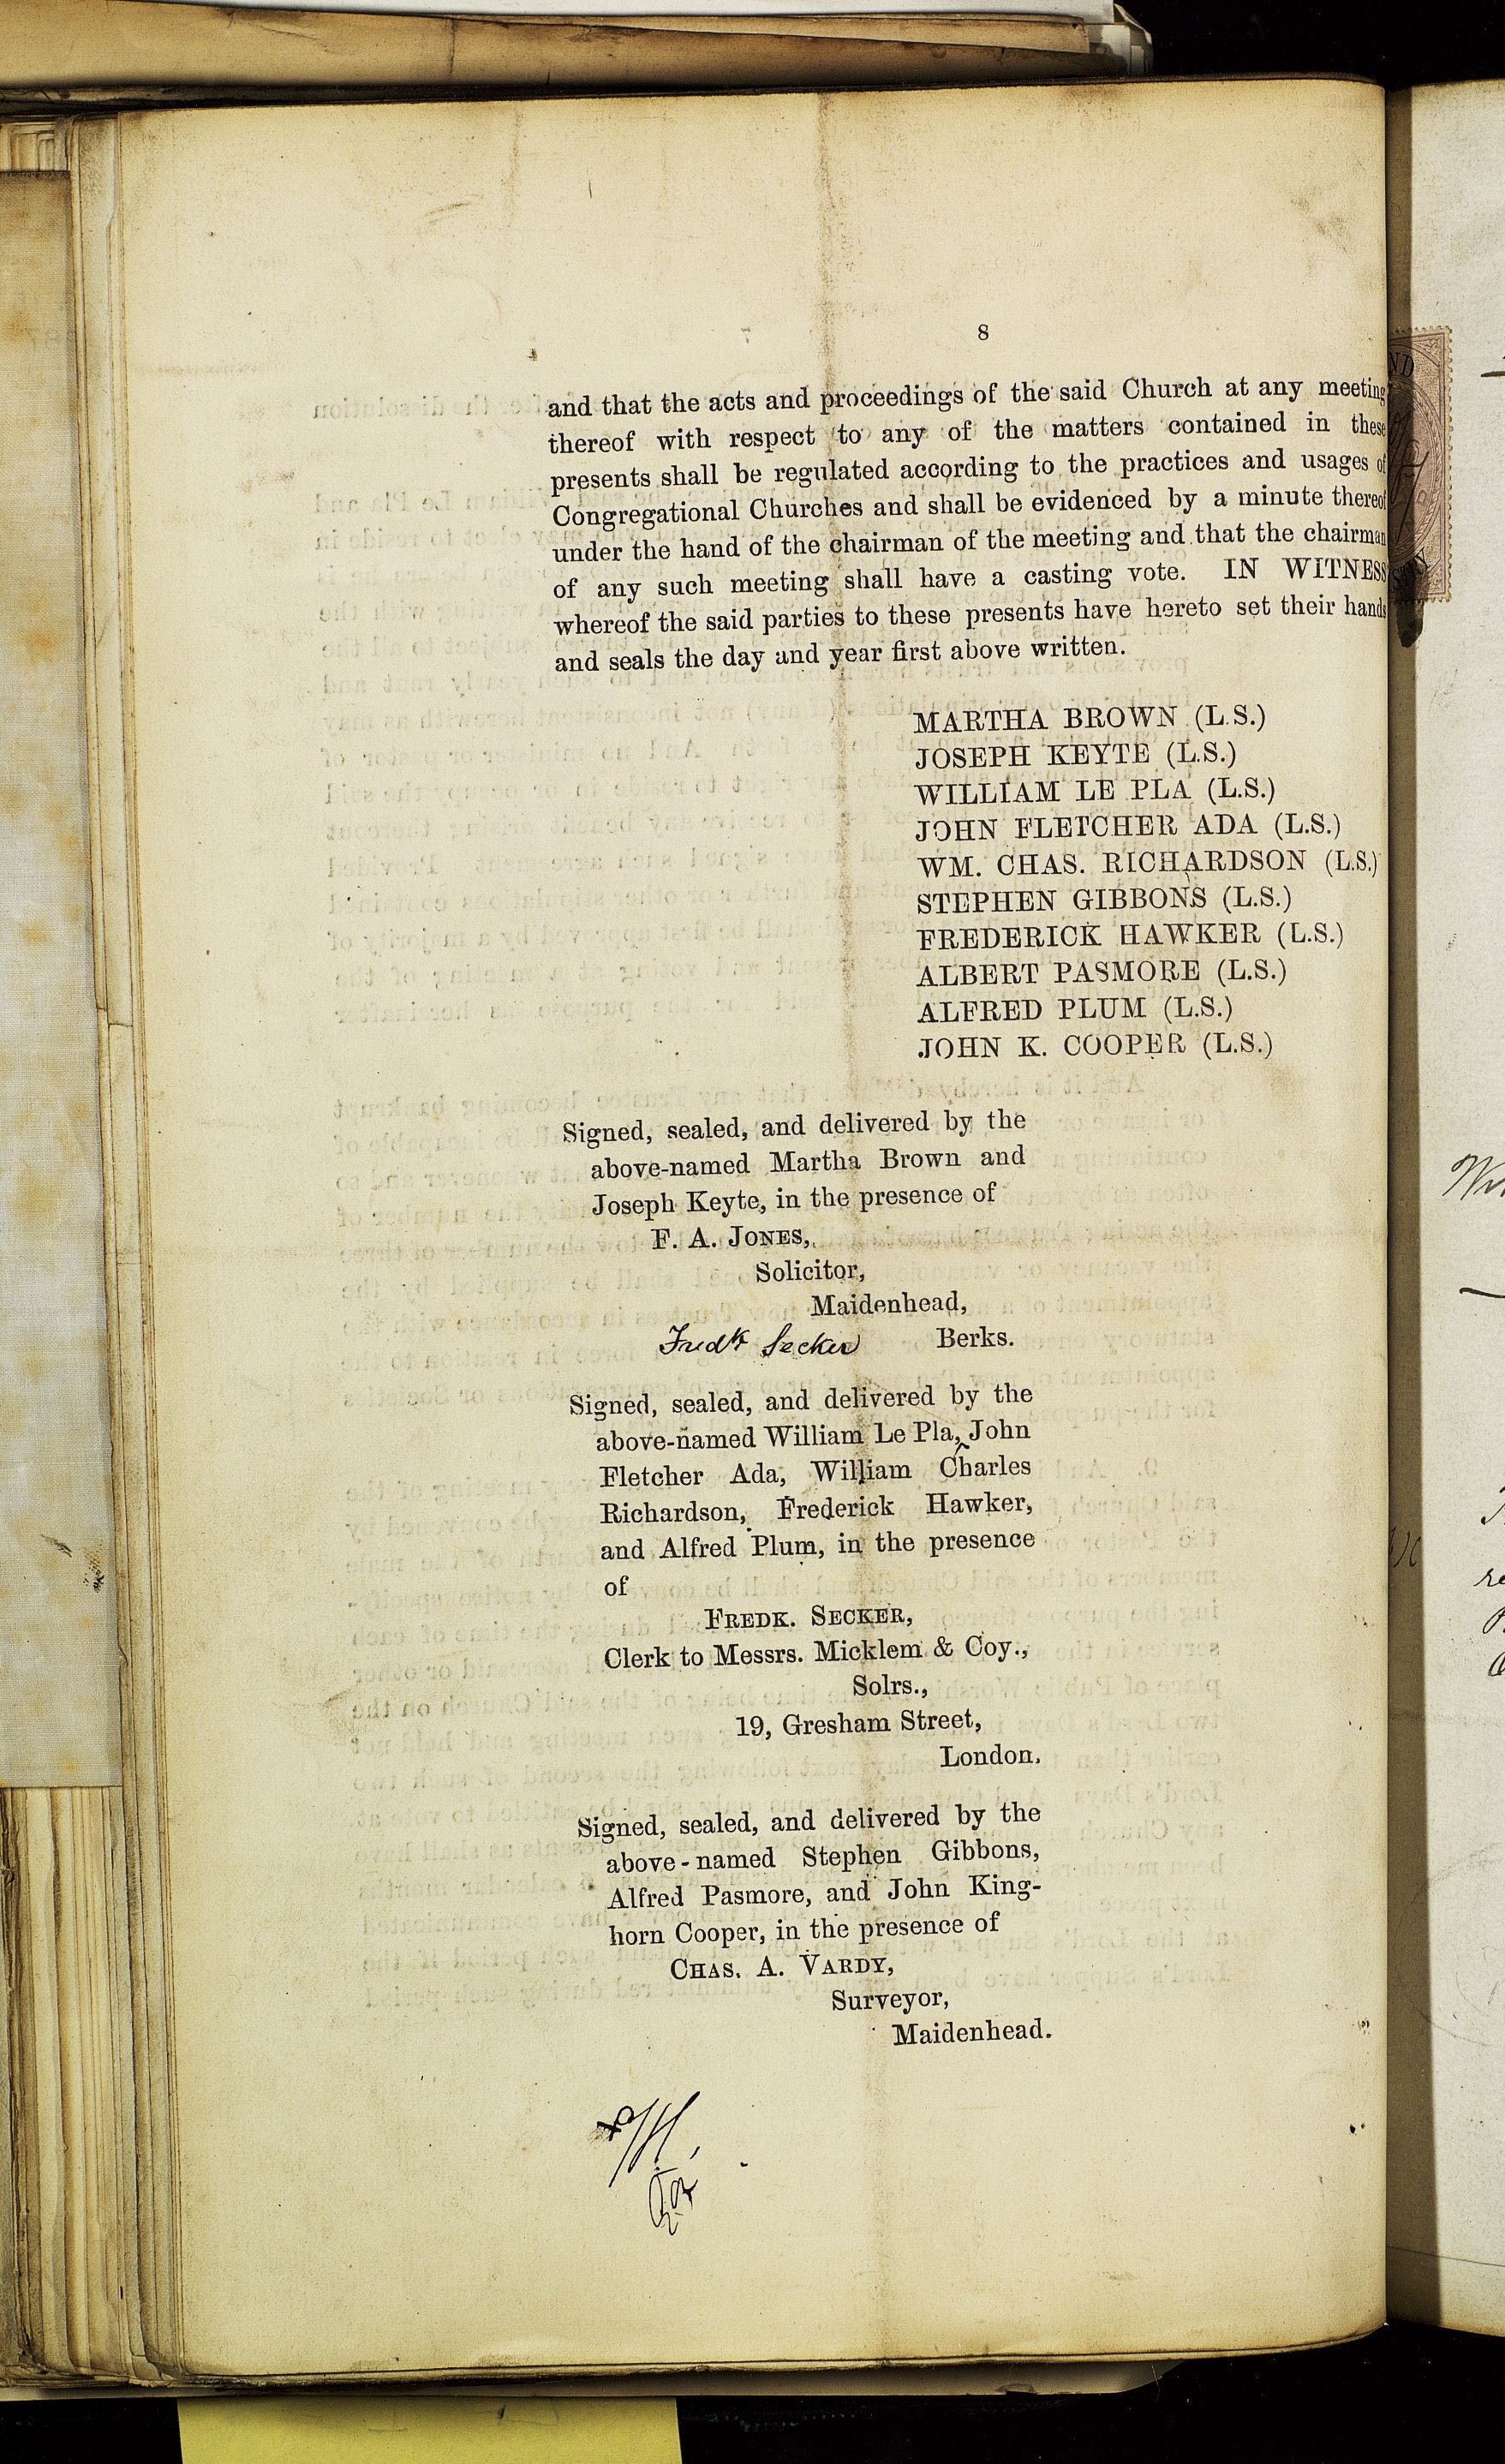 8
and that the acts and proceedings of the said Church at any meeting
thereof with respect to any of the matters contained in these
presents shall be regulated according to the practices and usages of
Congregational Churches and shall be evidenced by a minute thereof
under the hand of the chairman of the meeting and that the chairman
of any such meeting shall have a casting vote. IN WITNESS
whereof the said parties to these presents have hereto set their hands
and seals the day and year first above written.
MARTHA BROWN (L.S.)
JOSEPH KEYTE (L.S.)
WILLIAM LE PLA (L.S.)
JOHN FLETCHER ADA (L.S.)
WM. CHAS. RICHARDSON (L.S.)
STEPHEN GIBBONS (L.S.)
FREDERICK HAWKER (L.S.)
ALBERT PASMORE (L.S.)
ALFRED PLUM (L.S.)
JOHN K. COOPER (L.S.)
Signed, sealed, and delivered by the
above-named Martha Brown and
Joseph Keyte, in the presence of
F. A. JONES,
Solicitor,
Maidenhead,
Berks.
Fredk Secker
Signed, sealed, and delivered by the
above-named William Le Pla, John
Fletcher Ada, William Charles
Richardson, Frederick Hawker,
and Alfred Plum, in the presence
of
FREDK. SECKER,
Clerk to Messrs. Micklem & Coy.,
Solrs.,
19, Gresham Street,
London.
Signed, sealed, and delivered by the
above-named Stephen Gibbons,
Alfred Pasmore, and John King-
horn Cooper, in the presence of
CHAS. A. VARDY,
Surveyor,
Maidenhead.